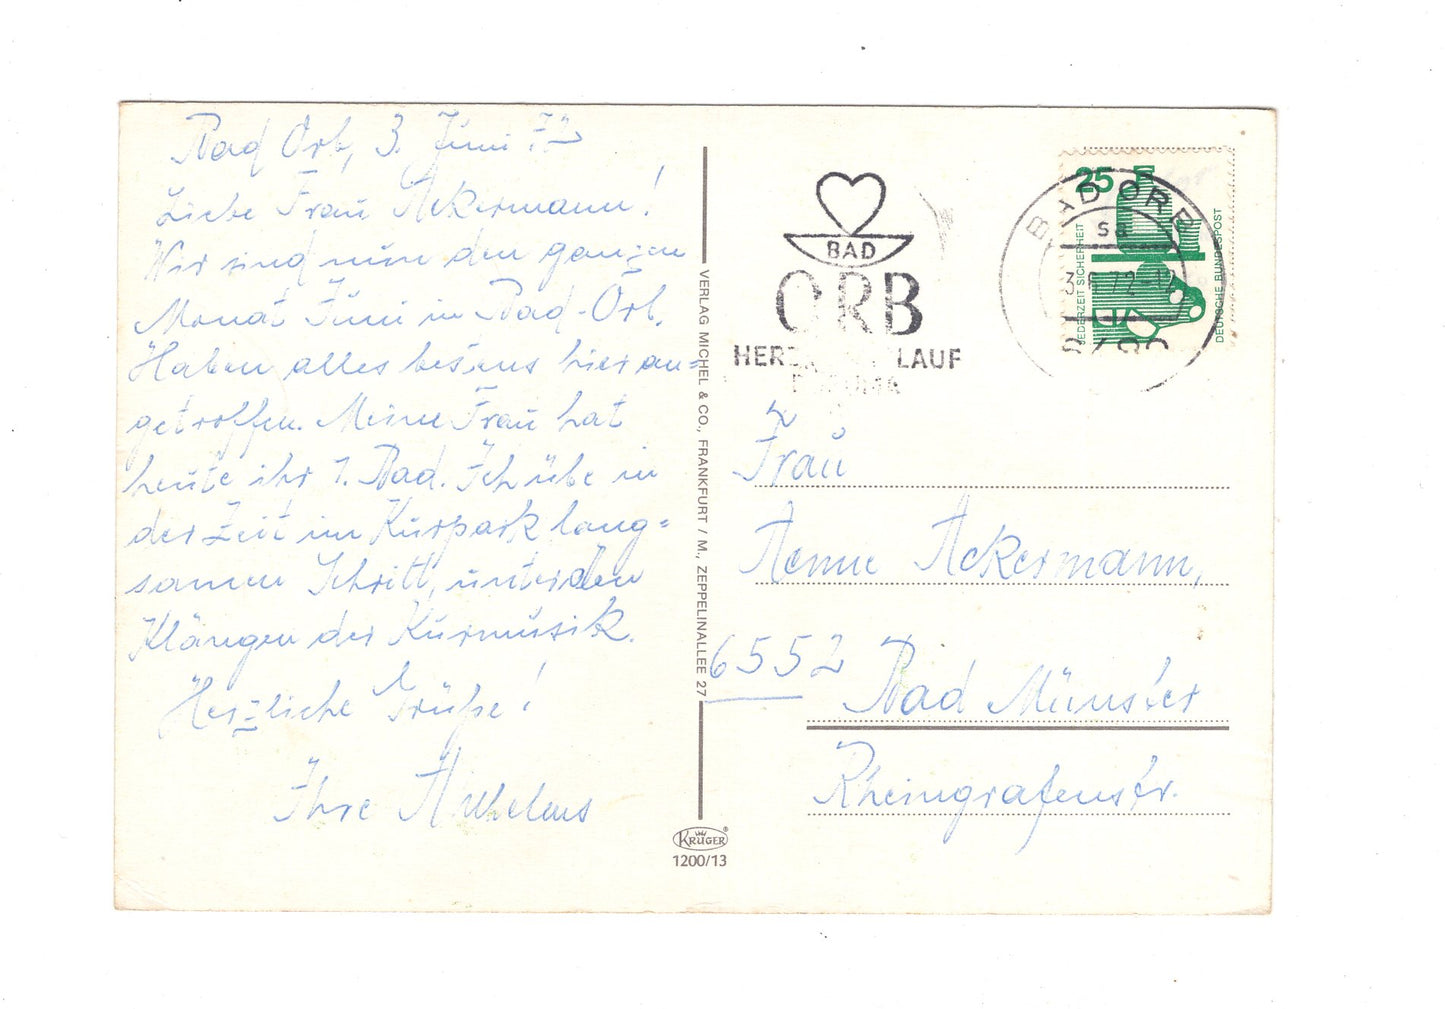 Bad Orb, 3. Juni 72
Liebe Frau Ackermann!
Wir sind nun den ganzen
Monat Juni in Bad-Orb.
Haben alles bestens hier an=
getroffen. Meine Frau hat
heute ihr 1. Bad. Ich übe in
der Zeit im Kurpark lang=
samen Schritt, unter den
Klängen der Kurmusik.
Herzliche Grüße!
Ihre
VERLAG MICHEL & CO., FRANKFURT / M., ZEPPELINALLEE 27
KRÜGER
1200/13
BAD
ORB
HERZ LAUF
BAD ORB
sa
25
JEDERZEIT SICHERHEIT
DEUTSCHE BUNDESPOST
Frau
Aenne Ackermann,
6552 Bad Münster
Rheingrafenstr.